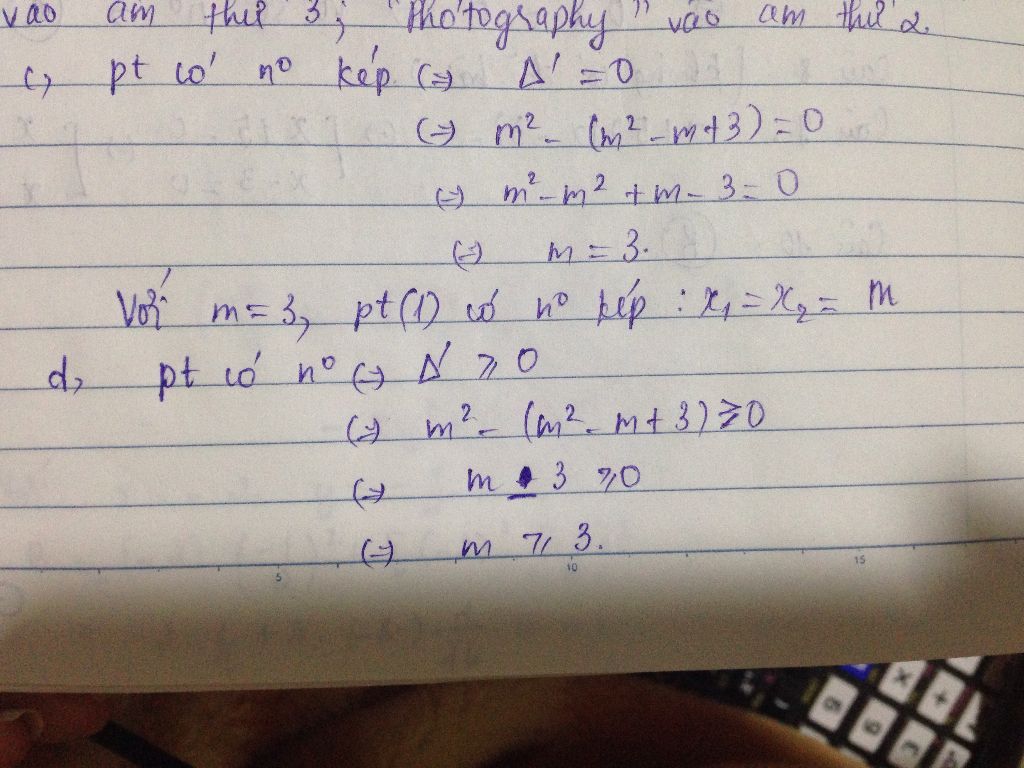 vào âm thứ 3; "Photography" vào âm thứ 2.
c, pt có n⁰ kép (=) Δ' = 0
(=) m² - (m² - m + 3) = 0
(=) m² - m² + m - 3 = 0
(=) m = 3.
Với m = 3, pt (1) có n⁰ kép : x₁ = x₂ = m
d, pt có n⁰ (=) Δ' ⩾ 0
(=) m² - (m² - m + 3) ⩾ 0
(=) m - 3 ⩾ 0
(=) m ⩾ 3.
5 10 15